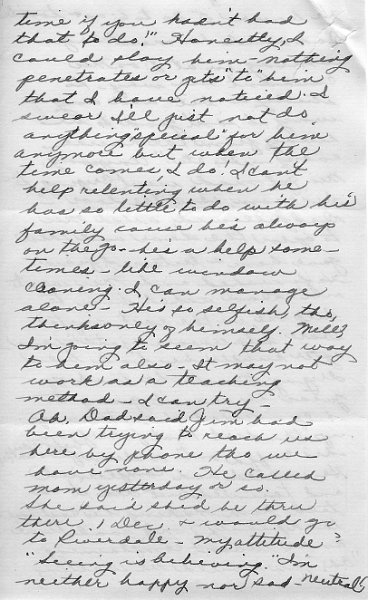 time if you hadn't had
that to do!" Honestly, I
could slay him - nothing
penetrates or gets "to" him
that I have noticed. I
swear I'll just not do
anything "special" for him
anymore but when the
time comes, I do! I can't
help relenting when he
has so little to do with his
family cause he's always
on the go - he's a help some-
times - like window
cleaning. I can manage
alone - He's so selfish, tho,
thinks only of himself. Well?
I'm going to seem that way
to him also - It may not
work as a teaching
method - I can try -
Oh, Dad said Jim had
been trying to reach us
here by phone tho we
have none. He called
mom yesterday or so.
She said she'd be thru
there 1 Dec + would go
to Riverdale - my attitude?
"Seeing is believing." I'm
neither happy nor sad - neutral